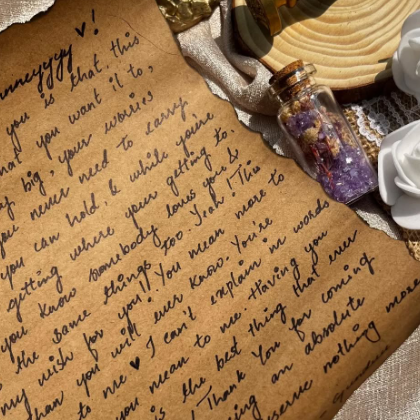 nneyyyy ♥!
you is that this
hat you want it to,
big, your worries
you never need to carry
you can hold, & while you're
getting where your getting to.
you know somebody loves you &
the same things too. Yeah! This
my wish for you!! You mean more to
than you will ever know. You're
to me ♥ I can't explain in words
you mean to me. Having you
is the best thing that ever
! Thank You for coming
ing an absolute
serve nothing more